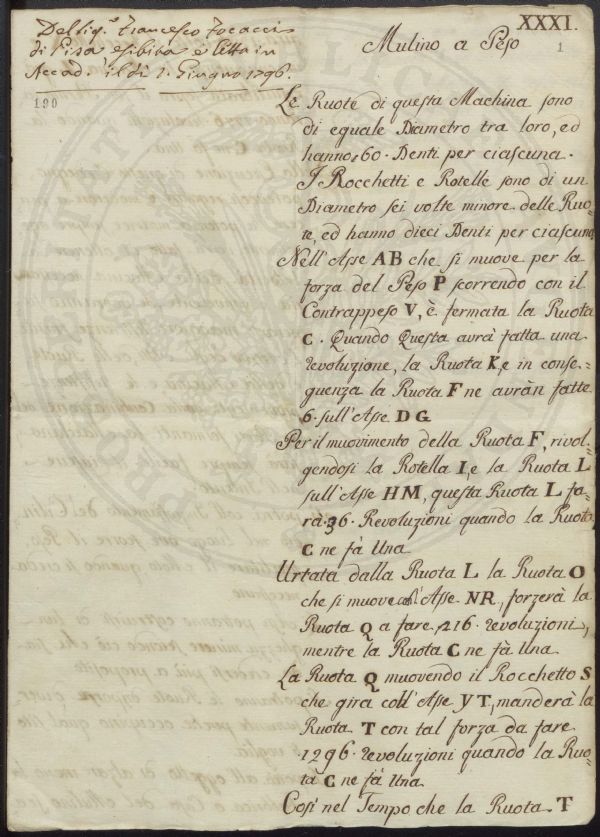 XXXI.
1
Del Sig.r Francesco Focacci
di Pisa esibita e letta in
Accad.a il dì 1. Giugno 1796.
190
Mulino a Peso
Le Ruote di questa Machina sono
di eguale Diametro tra loro, ed
hanno 60. Denti per ciascuna.
I Rocchetti e Rotelle sono di un
Diametro sei volte minore delle Ruo=
te, ed hanno dieci Denti per ciascuna
Nell'Asse AB che si muove per la
forza del Peso P scorrendo con il
Contrappeso V, è fermata la Ruota
C. Quando Questa avrà fatta una
revoluzione, la Ruota K, e in conse=
guenza la Ruota F ne avran fatte
6. sull'Asse DG
Per il muovimento della Ruota F, rivol=
gendosi la Rotella I, e la Ruota L
sull'Asse HM, questa Ruota L fa=
rà 36. Revoluzioni quando la Ruota
C ne fà Una
Urtata dalla Ruota L la Ruota O
che si muove coll'Asse NR, forzerà la
Ruota Q a fare 216. revoluzioni,
mentre la Ruota C ne fà Una
La Ruota Q muovendo il Rocchetto S
che gira coll'Asse YT, manderà la
Ruota T con tal forza da fare
1296. revoluzioni quando la Ruo=
ta C ne fà Una
Così nel Tempo che la Ruota T